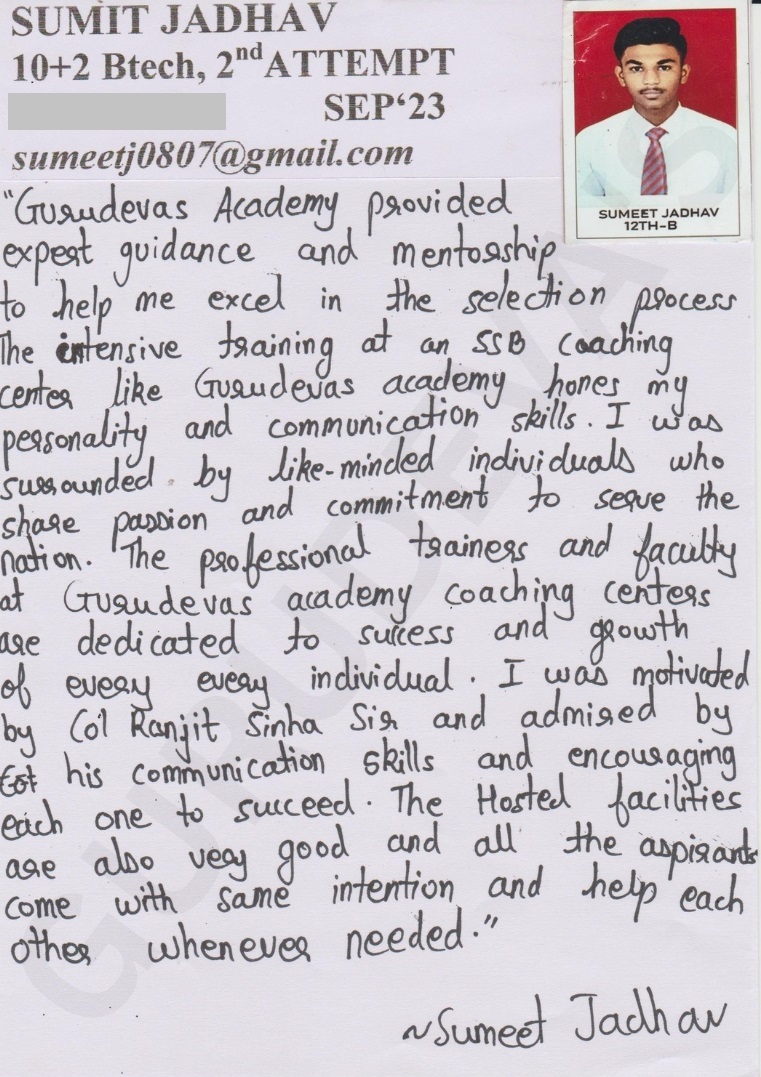 SUMIT JADHAV
10+2 Btech, 2nd ATTEMPT
SEP‘23
sumeetj0807@gmail.com
SUMEET JADHAV
12TH-B
"Gurudevas Academy provided
expert guidance and mentorship
to help me excel in the selection process
The intensive training at an SSB coaching
center like Gurudevas academy hones my
personality and communication skills. I was
surrounded by like-minded individuals who
share passion and commitment to serve the
nation. The professional trainers and faculty
at Gurudevas academy coaching centers
are dedicated to success and growth
of every every individual. I was motivated
by Col Ranjit Sinha Sir and admired by
his communication skills and encouraging
each one to succeed. The Hosted facilities
are also very good and all the aspirants
come with same intention and help each
other whenever needed."
~Sumeet Jadhav
GURUDEVAS